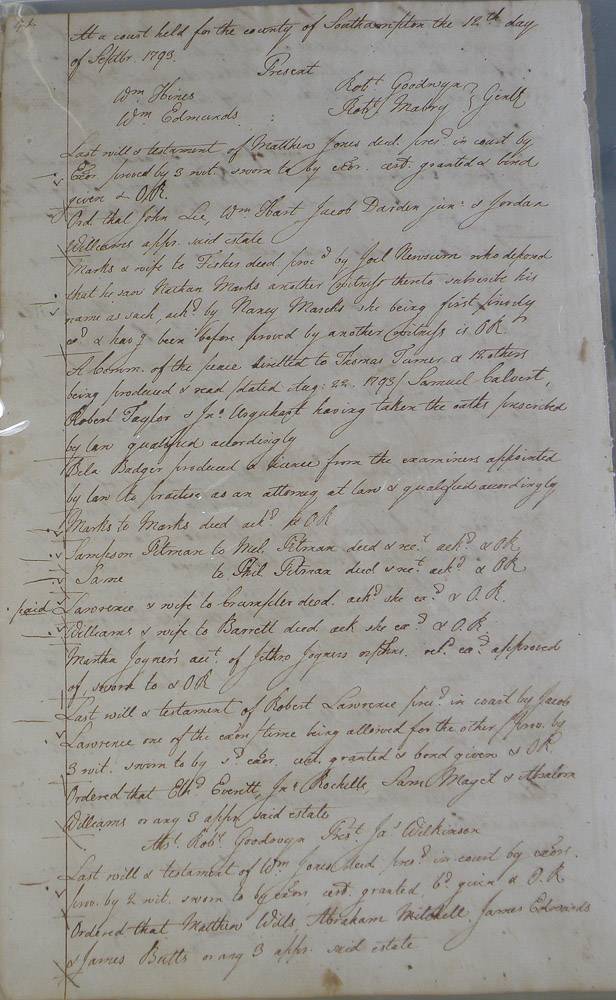 At a court held for the county of Southampton the 12th day
of Septbr. 1793.
Present
Wm Hines
Robt Goodwyn
Wm Edmunds
Robt Mabry } Gentl
Last will & testament of Matthew Jones decd. presd in court by
Exor. proved by 3 wit. sworn to by exor. cert. granted & bond
given & O.R.
Ord. that John Lee, Wm Hart Jacob Darden junr & Jordan
Williams appr. said estate
Marks & wife to Fisher deed provd by Joel Newsum who deposd
that he saw Nathan Marks another witness thereto subscribe his
name as such, ackd by Nancy Marcks she being first
exd & havg been before proved by another witness is O R
A Comm. of the peace directed to Thomas Turner & others
being produced & read (dated Aug. 22. 1793) Samuel Calvert,
Robert Taylor & Jno Urquhart having taken the oaths prescribed
by law qualified accordingly
Bela Badger produced a licence from the examiners appointed
by law to practise as an attorney at law & qualified accordingly
Marks to Marks deed ackd & O R
Sampson Pitman to Mel. Pitman deed & rect ackd & O R
Same to Phil Pitman deed & rect ackd & O R
paid Lawrence & wife to Crumpler deed. ackd she exd & O. R.
Williams & wife to Barrett deed ack she exd & O. R
Martha Joyner's acct of Jethro Joyners orphns. exd approved
of, sworn to & O R
Last will & testament of Robert Lawrence presd in court by Jacob
Lawrence one of the exors (time being allowed for the other) prov. by
3 wit. sworn to by sd exor. cert. granted & bond given & O R
Ordered that Ethd Everitt, Jno Rochelle, Saml Maget & Absalom
Williams or any 3 appr. said estate
Abst. Robt Goodwyn Prest Jas Wilkinson
Last will & testament of Wm Jones decd presd in court by exors.
prov. by 2 wit. sworn to by exors cert granted bd given & O. R
Ordered that Matthew Wills, Abraham Mitchell, James Edwards
& James Butts or any 3 appr. said estate